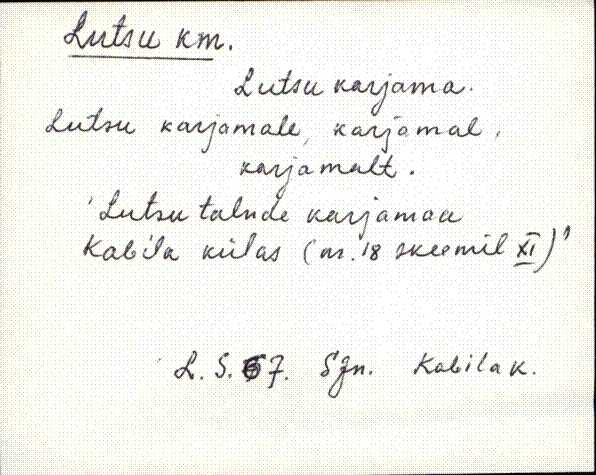 Lutsu km.
Lutsu karjama.
Lutsu karjamale, karjamal,
karjamalt.
'Lutsu talude karjamaa
Kabila külas (nr. 18 skeemil XI)'
L. S. 67. SJn. Kabila k.